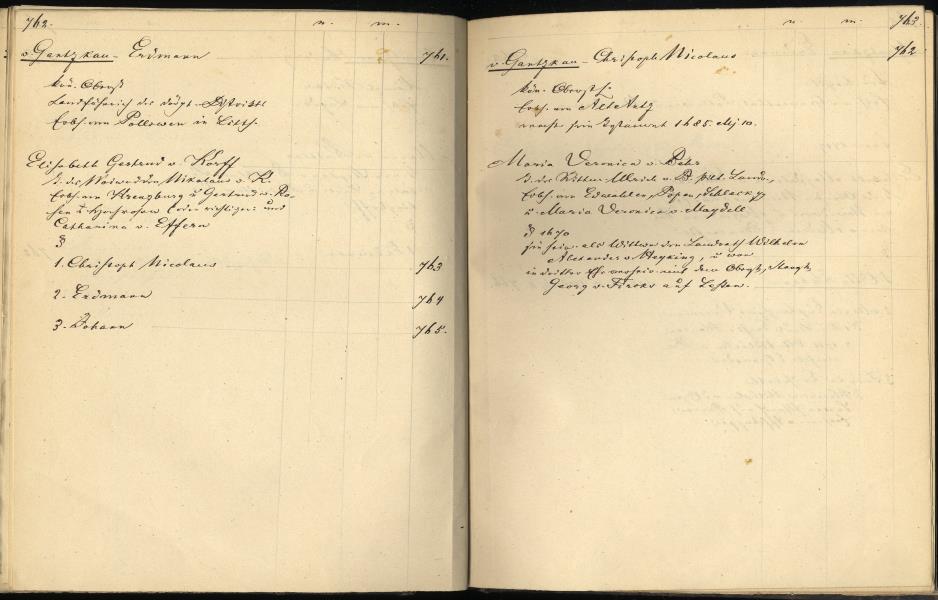 762.
n. m.
v. Gantzkau - Erdmann 761.
kön. Oberst
Landfähnrich des Distrikts
Erbh. von Pollowen in Litth.
Elisabeth Gertrud v. Korff
T. des Woiwoden Nikolaus v. K.
Erbh. von Kreuzburg u Gertrud v. Ro-
sen u Hochrosen (oder richtiger: und
Catharina v. Effern
§
1. Christoph Nicolaus 763
2. Erdmann 764
3. Johann 765.
n. m. 763.
v. Gantzkau - Christoph Nicolaus 762
kön. Oberstl.
Erbh. von
machte sein Testament 1685. 10.
Maria Veronica v. Behr
T. des Ritters Ulrich v. B. pilt. Landr.,
Erbh. von Edwahlen, Popen, Schleck pp
u. Maria Veronica v. Maydell
§ 1670
sie heir. als Wittwe den Landrath Wilhelm
Alexander v. Heyking, u war
in dritter Ehe mit dem Oberst,
Georg v. Fircks auf Lesten.